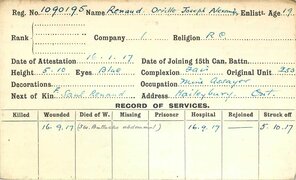 Reg. No. 1090195 Name Renaud Orville Joseph Enlistt. Age 19
Rank Company 1 Religion R.C.
Date of Attestation 16.1.17 Date of Joining 15th Can. Battn.
Height 5.10 Eyes Blue Complexion Fair Original Unit 253
Decorations Occupation Mine Assayer
Next of Kin Renaud Address Haileybury Ont.
RECORD OF SERVICES.
Killed Wounded Died of W. Missing Prisoner Hospital Rejoined Struck off
16.9.17 16.9.17 5.10.17